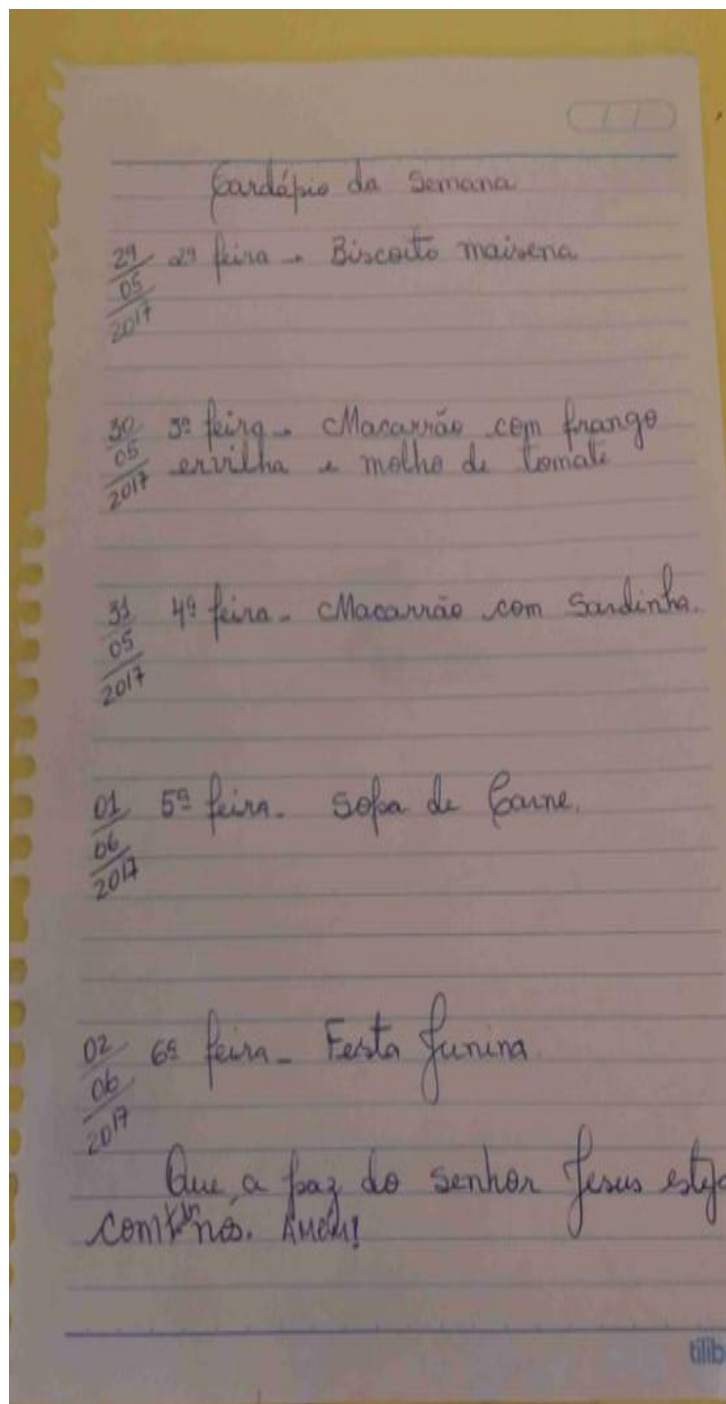 Cardápio da Semana
29/05/2017 2ª feira - Biscoito maisena
30/05/2017 3ª feira - Macarrão com frango
ervilha e molho de tomate
31/05/2017 4ª feira - Macarrão com Sardinha.
01/06/2017 5ª feira - Sopa de Carne.
02/06/2017 6ª feira - Festa Junina
Que a paz do senhor Jesus esteja
com nós. Amém!
tilib